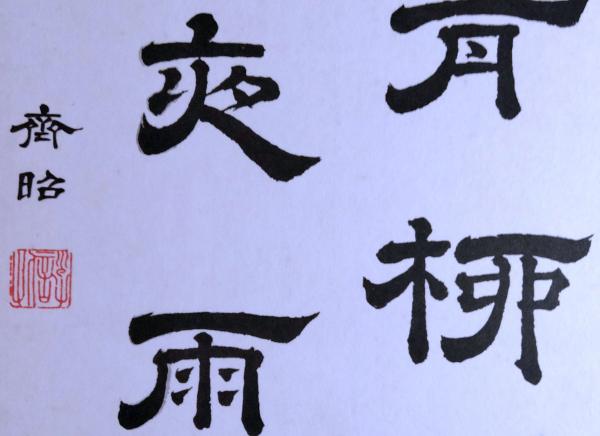 青柳
夜雨
齊昭